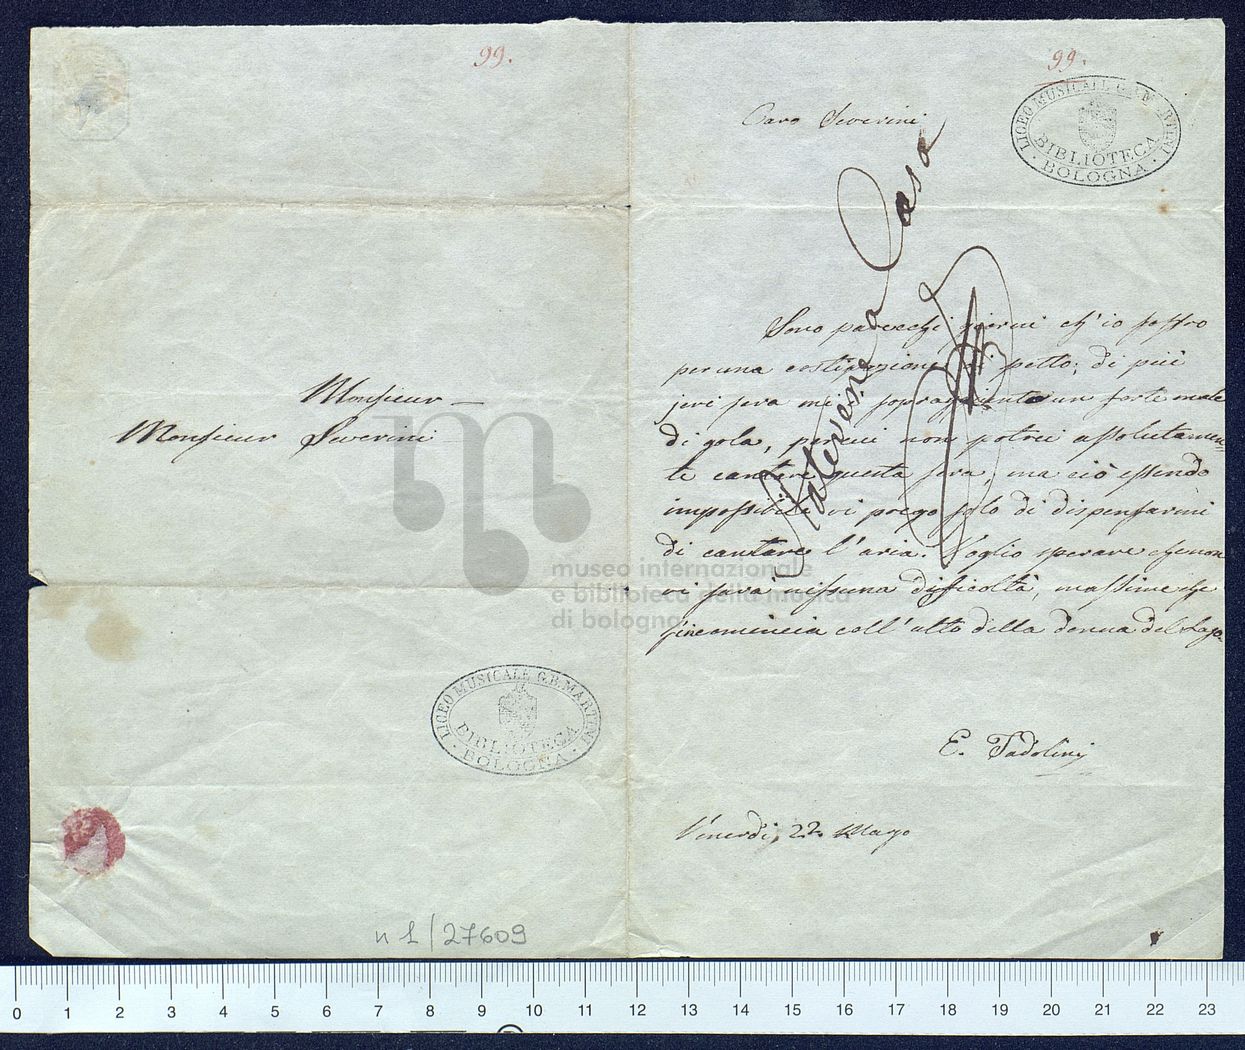 99.
Monsieur
Monsieur Severini
LICEO MUSICALE G.B. MARTINI
BIBLIOTECA
BOLOGNA
n 1/27609
99.
LICEO MUSICALE G.B. MARTINI
BIBLIOTECA
BOLOGNA
Caro Severini
Casa
Sono parecchi giorni ch'io soffro
per una costipazione di petto; di più
jeri sera mi sopraggiunto un forte male
di gola, percui non potrei assolutamen=
te cantare questa sera, ma ciò essendo
impossibile vi prego solo di dispensarmi
di cantare l'aria. Voglio sperare che non
vi sarà nissuna difficoltà, massime che
s'incomincia coll'atto della donna del Lago.
E. Tadolini
Venerdi, 22 Mago
museo internazionale
e biblioteca della musica
di bologna
0 1 2 3 4 5 6 7 8 9 10 11 12 13 14 15 16 17 18 19 20 21 22 23